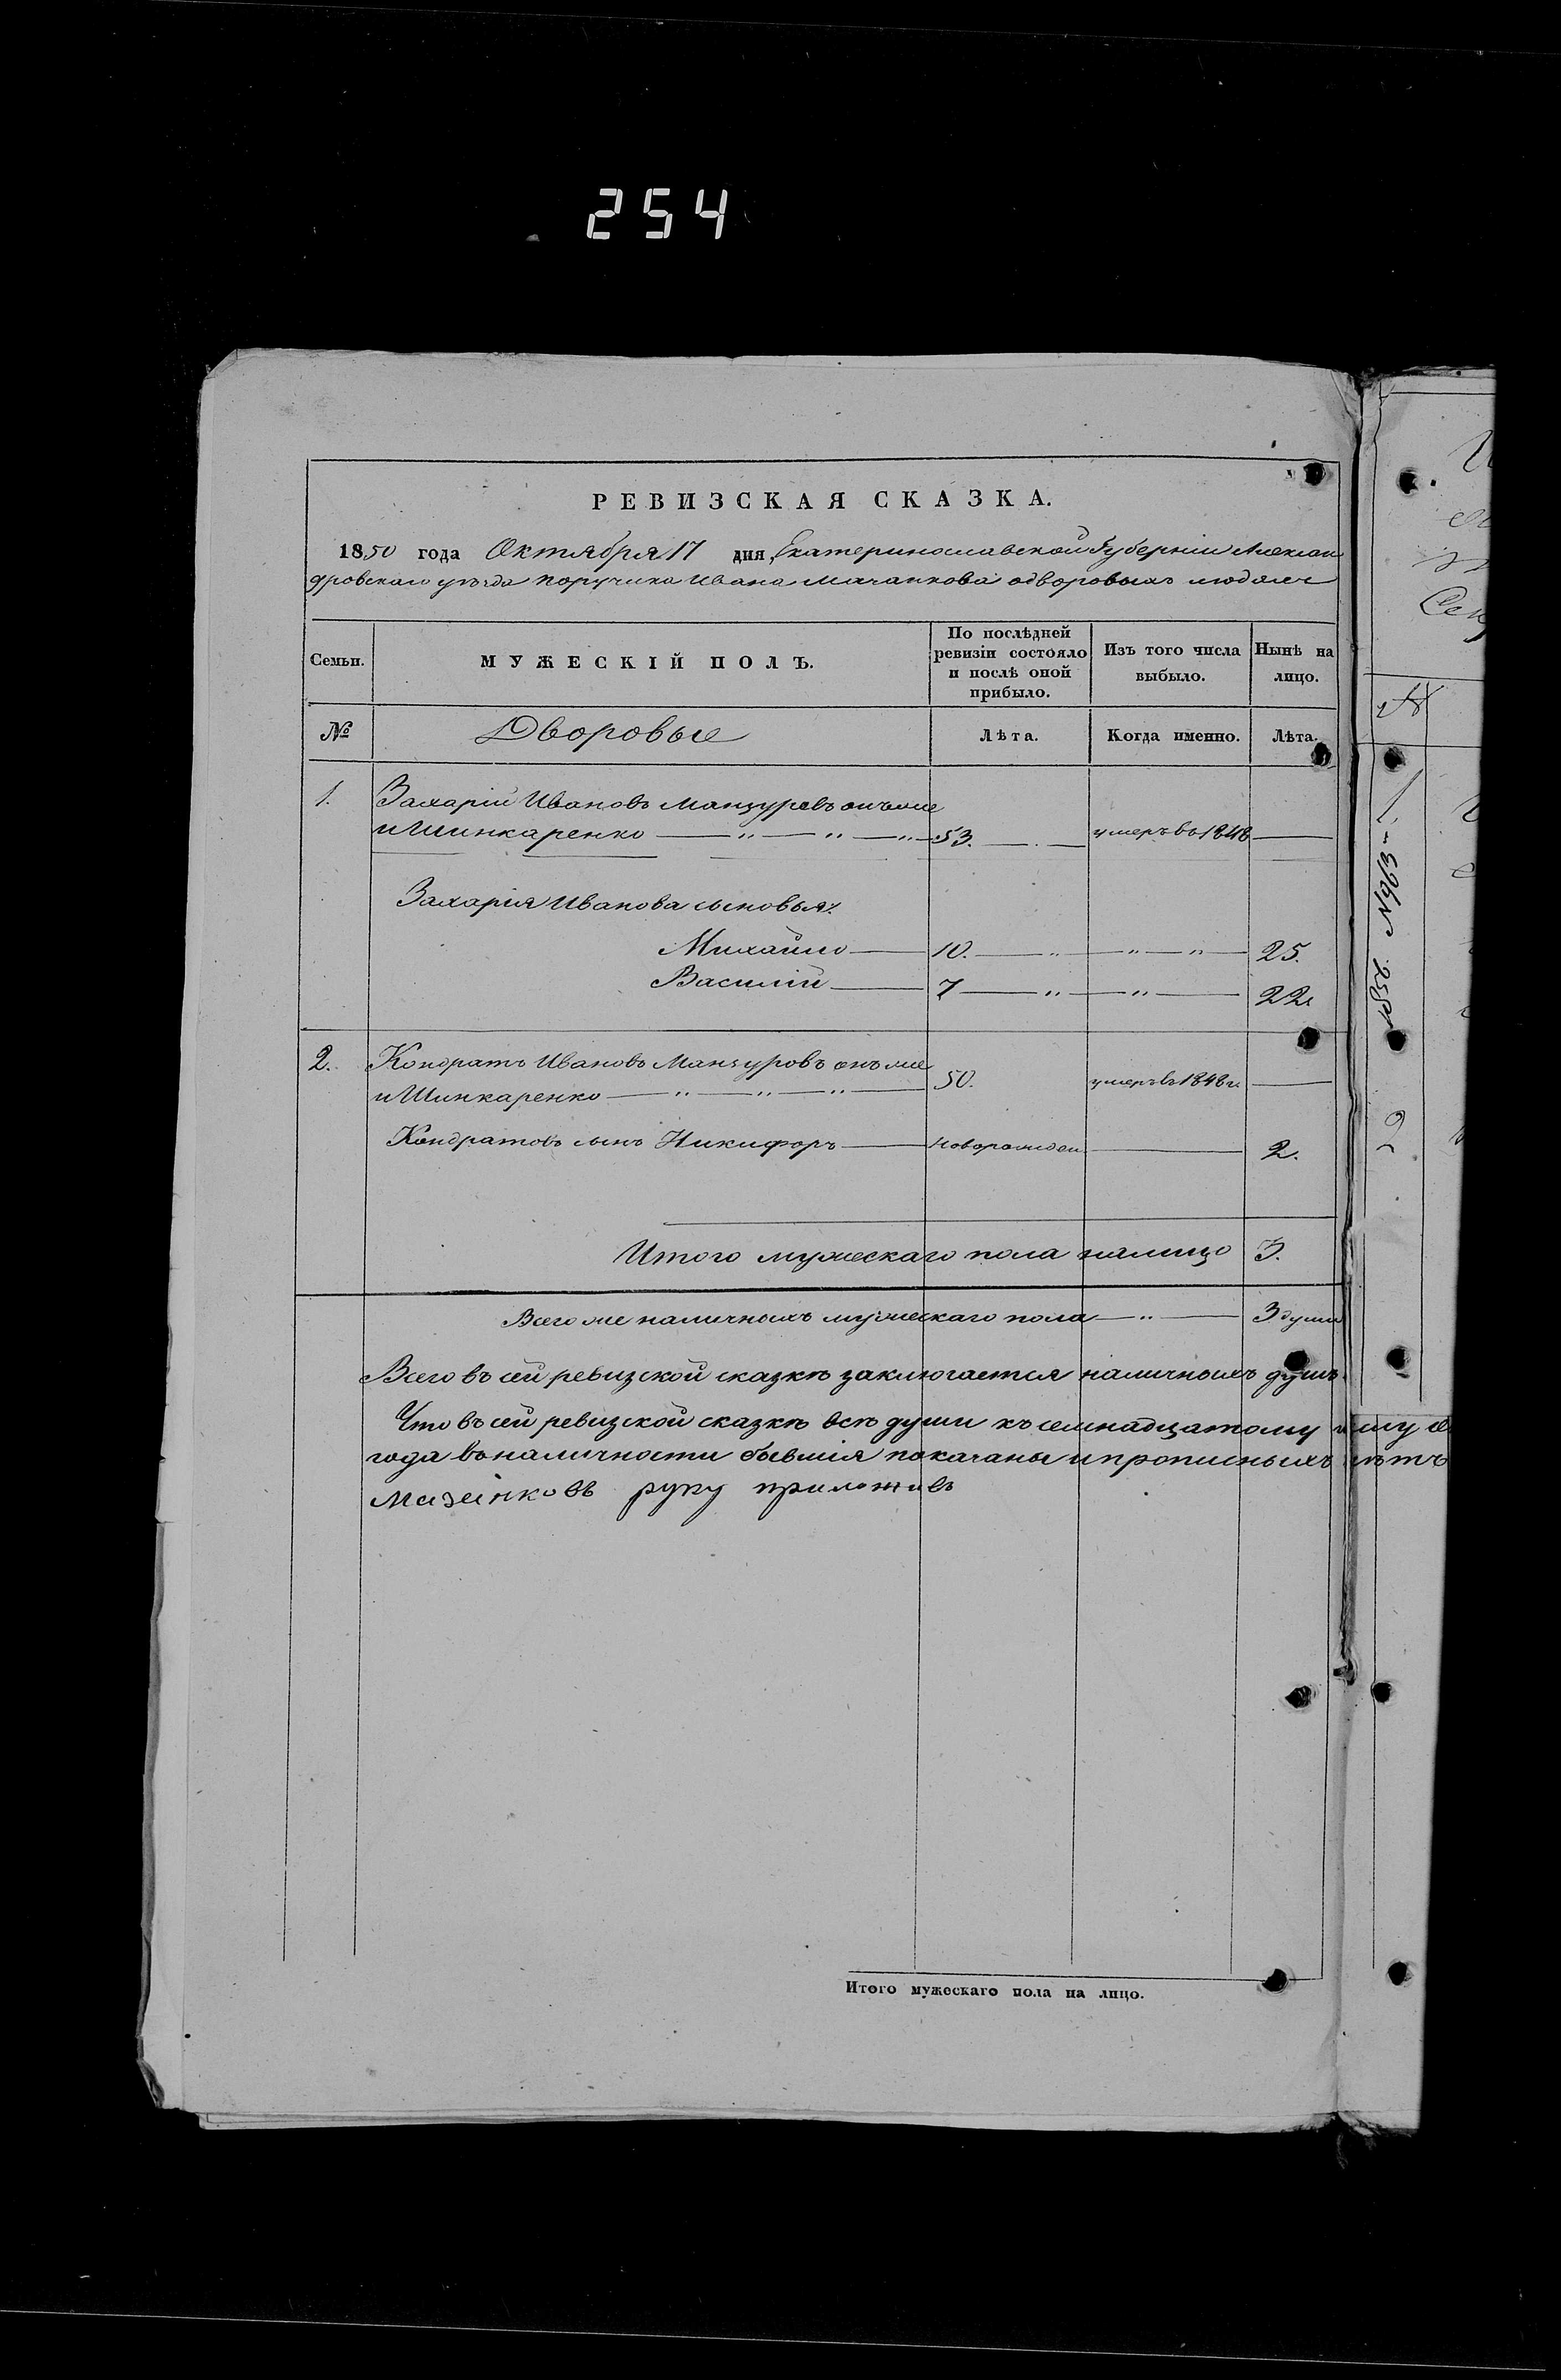 254
РЕВИЗСКАЯ СКАЗКА.
1850 года Октября 17 дня, Екатеринославской Губерніи Алексан
дровскаго уѣзда поручика Ивана Мачанкова одворовыхъ людяхъ
Семьи. МУЖЕСКІЙ ПОЛЪ. По послѣдней ревизіи состояло и послѣ оной прибыло. Изъ того числа выбыло. Нынѣ на лицо.
№ Дворовые Лѣта. Когда именно. Лѣта.
1. Захарій Ивановъ Манзуровъ онъже
и Шинкаренко — " — " — " 53. умеръ въ 1848 —
Захарія Иванова сыновья:
Михайло — 10. — " — " — " — 25.
Василій — 7 — " — " — 22.
2. Кондратъ Ивановъ Манзуровъ онъже
и Шинкаренко — " — " — " — 50. умеръ въ 1848 г. —
Кондратовъ сынъ Никифоръ — новорожден — 2.
Итого мужескаго пола налицо 3.
Всего же наличныхъ мужескаго пола — " — 3 души
Всего въ сей ревизской сказкѣ заключается наличныхъ душъ
Что въ сей ревизской сказкѣ всѣ души къ семнадцатому
года въ наличности бывшія показаны и прописныхъ нѣтъ
руку приложивъ
Итого мужескаго пола на лицо.
1856. N963
2